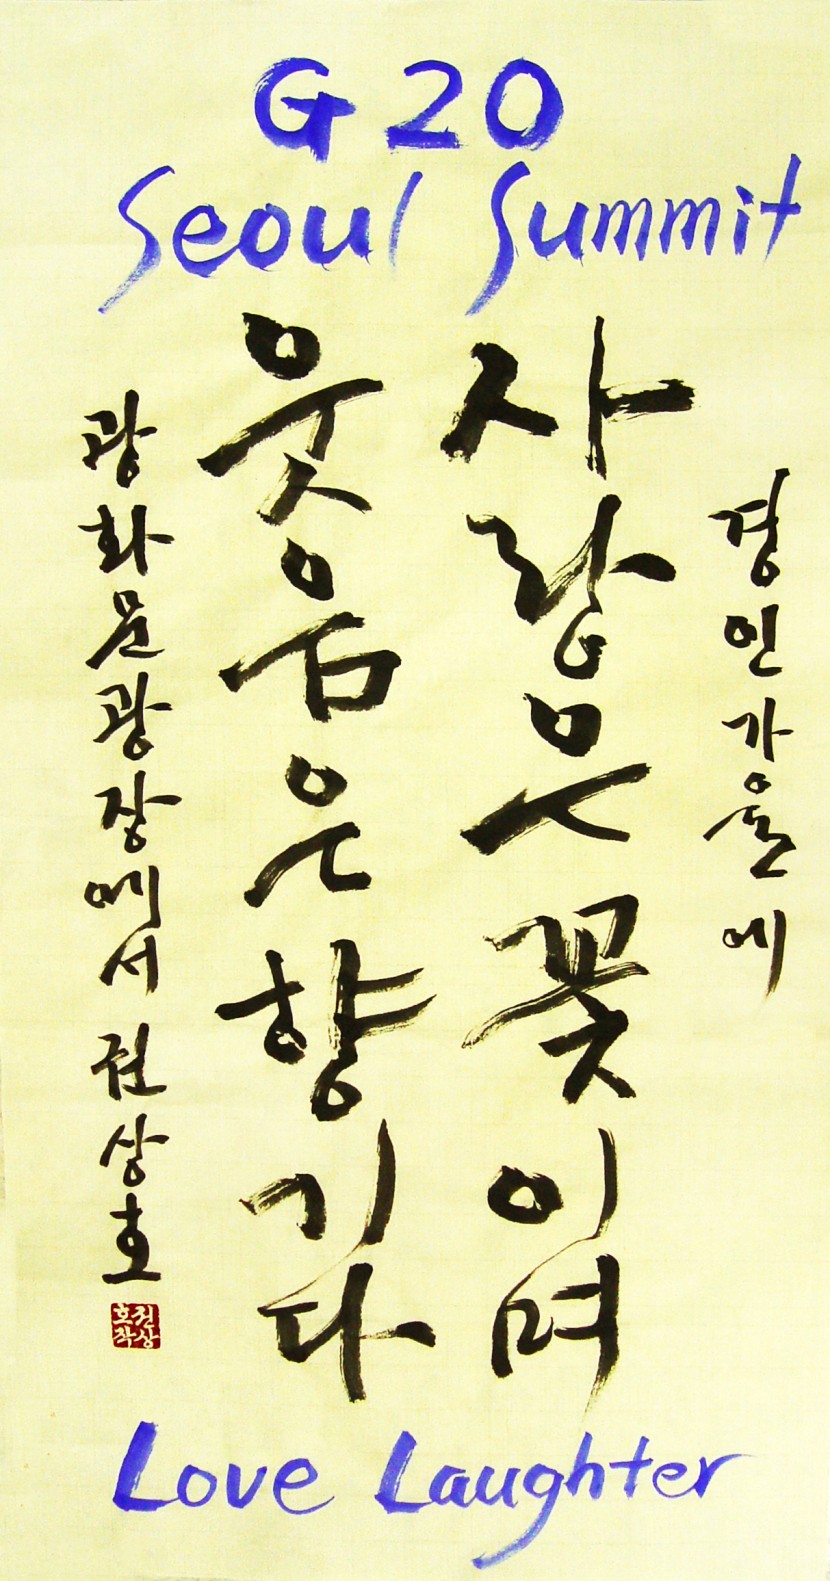 G20
Seoul Summit
경인가을에
사랑은꽃이며
웃음은향기다
광화문광장에서 권상호
권상
호작
Love Laughter